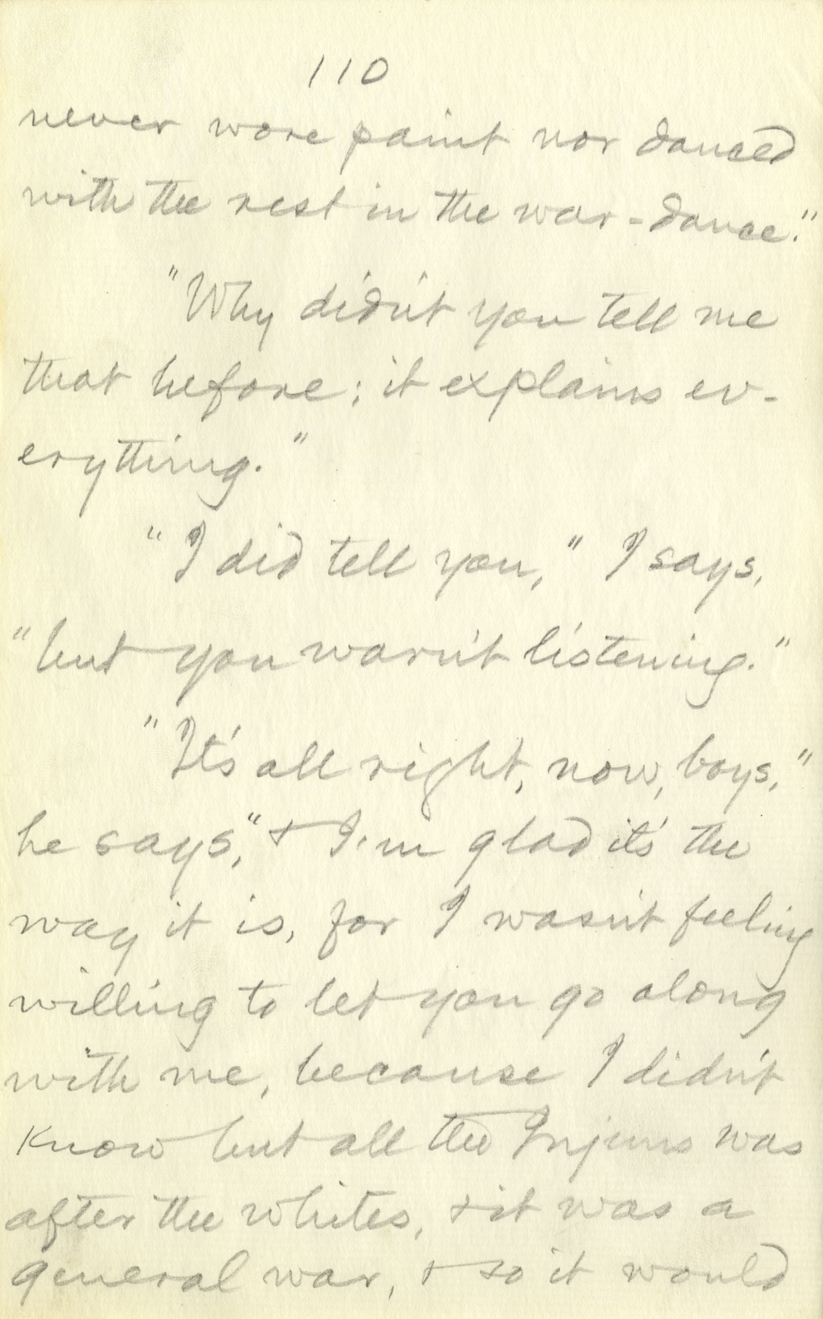 110
never wore paint nor danced
with the rest in the war-dance."
"Why didn't you tell me
that before; it explains ev-
erything."
"I did tell you," I says,
"but you warn't listening."
"It's all right, now, boys,"
he says, "& I'm glad it's the
way it is, for I wasn't feeling
willing to let you go along
with me, because I didn't
know but all the Injuns was
after the whites, & it was a
general war, & so it would